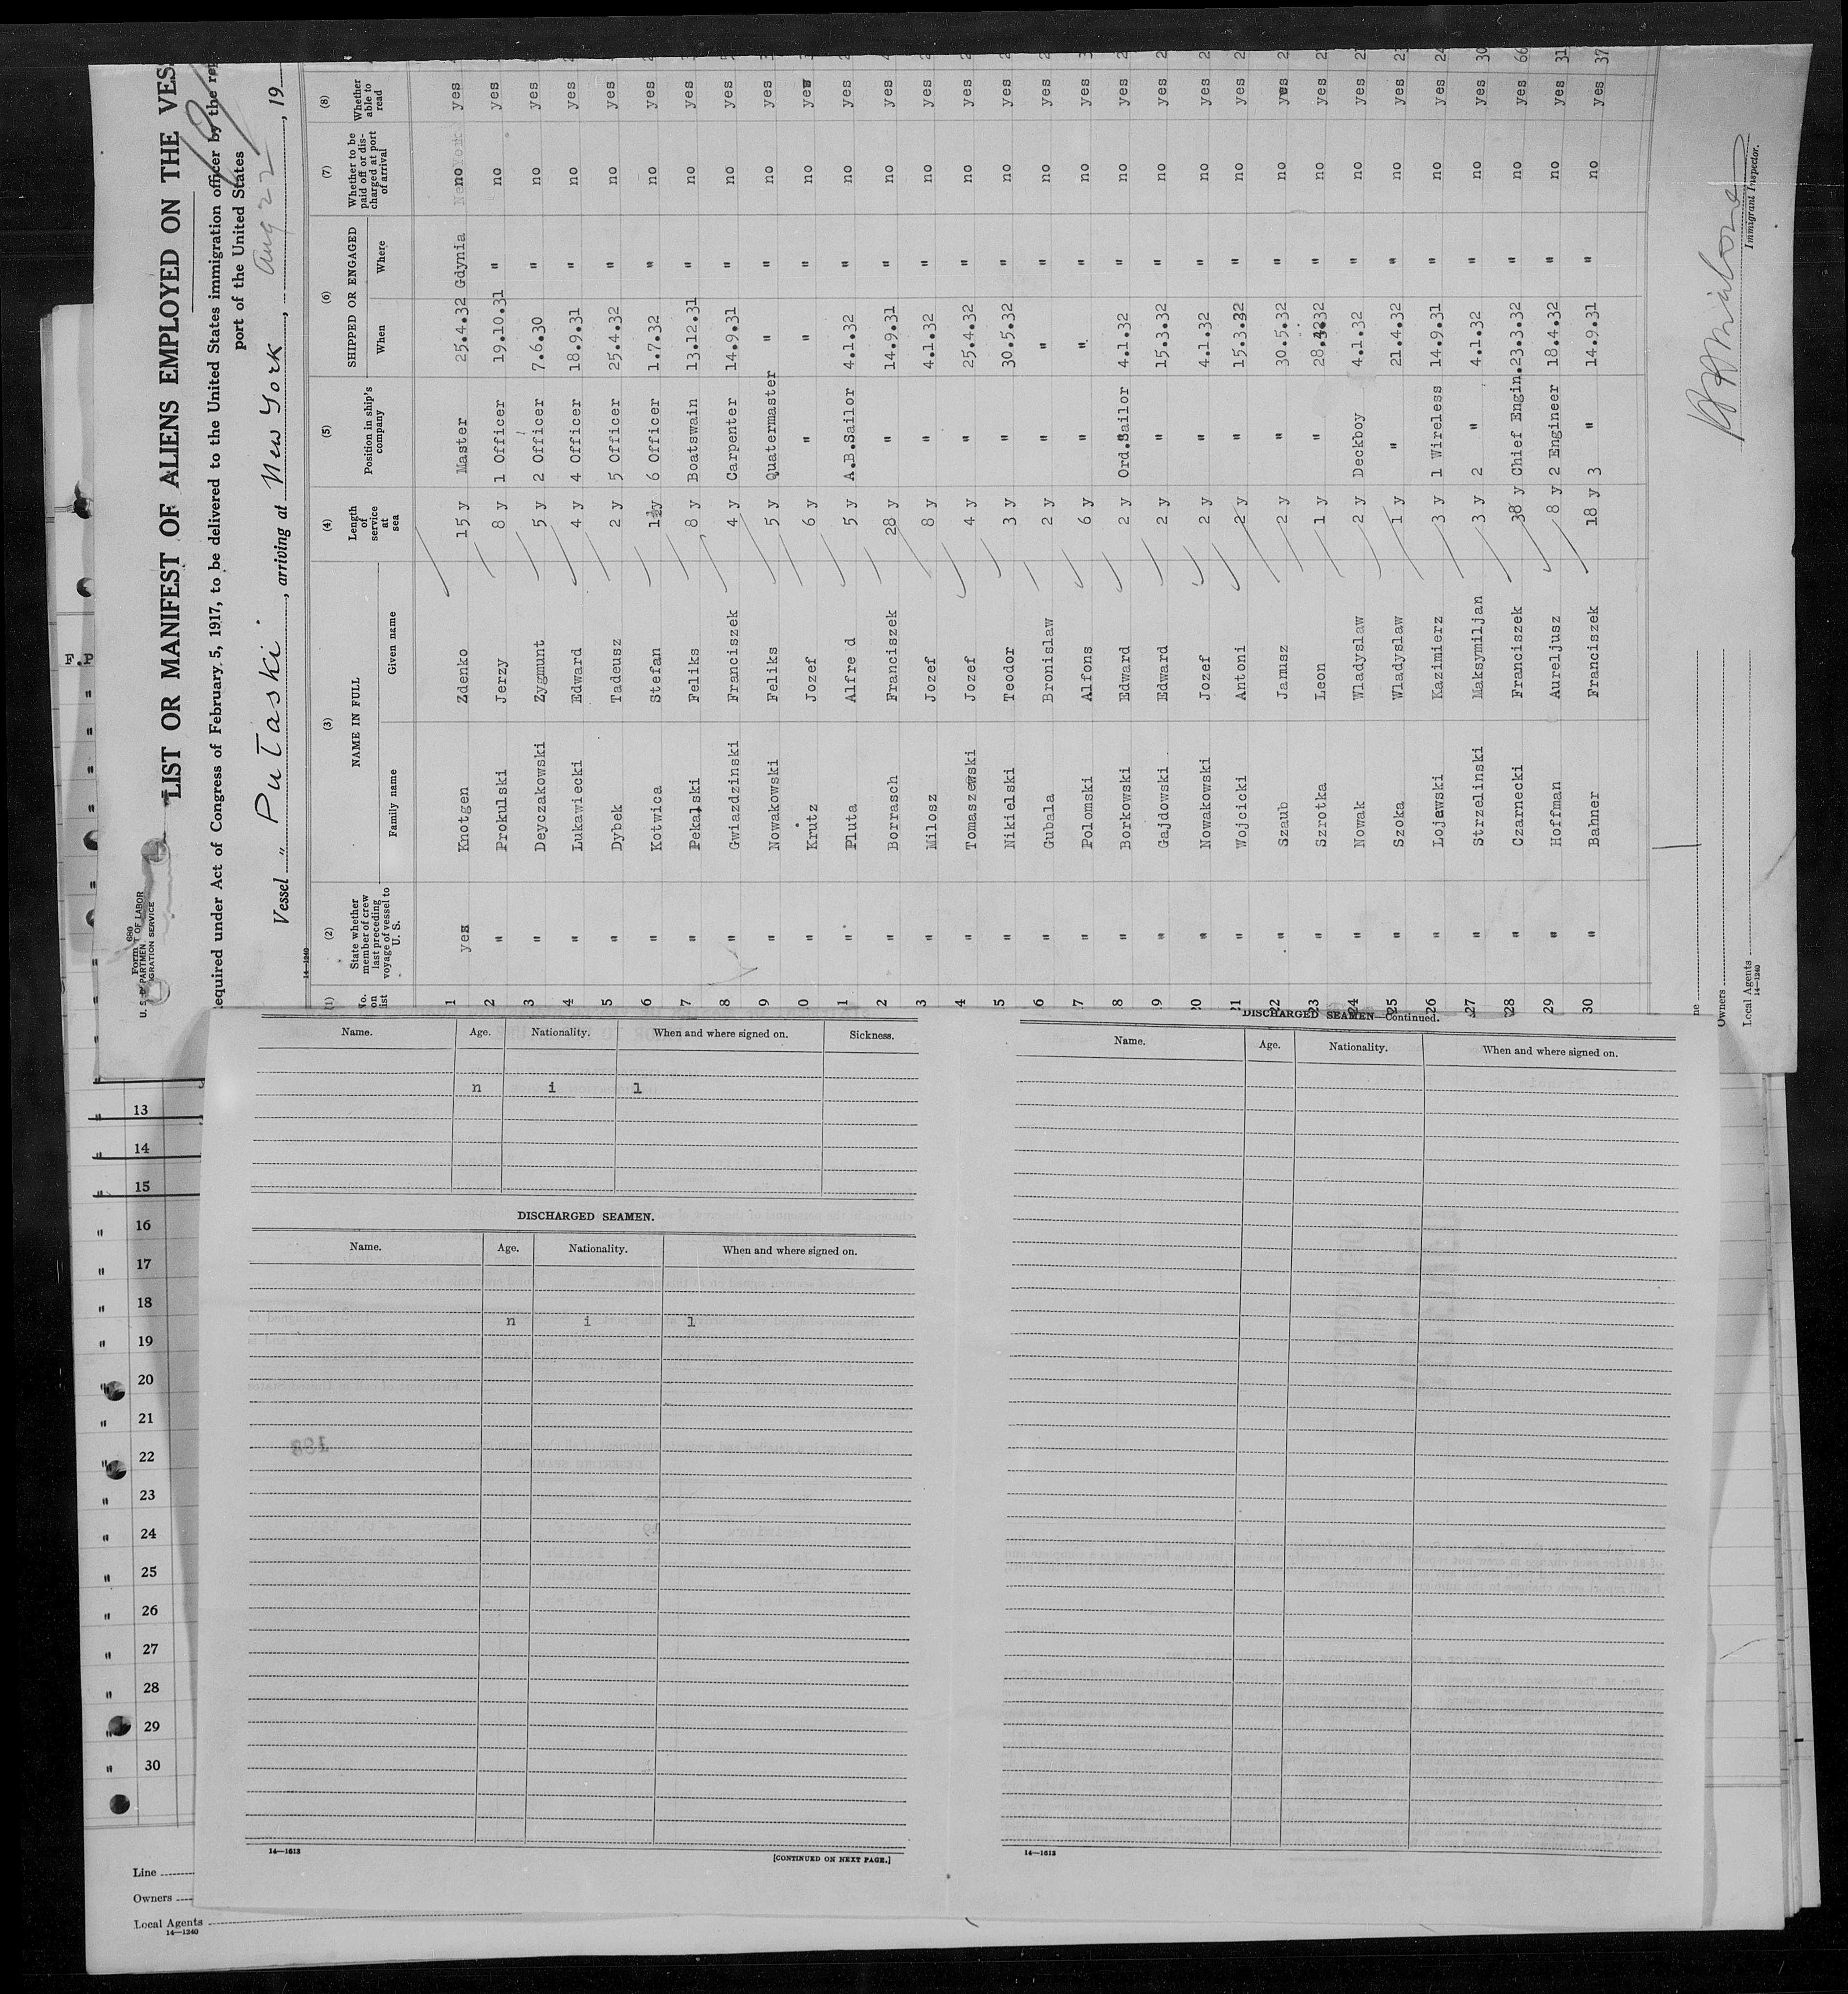 Form 680
U. S. DEPARTMENT OF LABOR
IGRATION SERVICE
LIST OR MANIFEST OF ALIENS EMPLOYED ON THE VES
equired under Act of Congress of February 5, 1917, to be delivered to the United States immigration officer by the rep
port of the United States
Vessel " Pulaski ", arriving at New York, Aug 22, 19
14—1240
(1) No. on list (2) State whether member of crew last preceding voyage of vessel to U. S. (3) NAME IN FULL Family name Given name (4) Length of service at sea (5) Position in ship's company (6) SHIPPED OR ENGAGED When Where (7) Whether to be paid off or discharged at port of arrival (8) Whether able to read
1 yes Knotgen Zdenko 15 y Master 25.4.32 Gdynia no yes
2 " Prokulski Jerzy 8 y 1 Officer 19.10.31 " no yes
3 " Deyczakowski Zygmunt 5 y 2 Officer 7.6.30 " no yes
4 " Lukawiecki Edward 4 y 4 Officer 18.9.31 " no yes
5 " Dybek Tadeusz 2 y 5 Officer 25.4.32 " no yes
6 " Kotwica Stefan 1½y 6 Officer 1.7.32 " no yes
7 " Pekalski Feliks 8 y Boatswain 13.12.31 " no yes
8 " Gwiazdzinski Franciszek 4 y Carpenter 14.9.31 " no yes
9 " Nowakowski Feliks 5 y Quatermaster " " no yes
0 " Krutz Jozef 6 y " " " no yes
1 " Pluta Alfre d 5 y A.B.Sailor 4.1.32 " no yes
2 " Borrasch Franciszek 28 y " 14.9.31 " no yes
3 " Milosz Jozef 8 y " 4.1.32 " no yes
4 " Tomaszewski Jozef 4 y " 25.4.32 " no yes
5 " Nikielski Teodor 3 y " 30.5.32 " no yes
6 " Gubala Bronislaw 2 y " " " no yes
7 " Polomski Alfons 6 y " " " no yes
8 " Borkowski Edward 2 y Ord.Sailor 4.1.32 " no yes
19 " Gajdowski Edward 2 y " 15.3.32 " no yes
20 " Nowakowski Jozef 2 y " 4.1.32 " no yes
21 " Wojcicki Antoni 2 y " 15.3.32 " no yes
22 " Szaub Janusz 2 y " 30.5.32 " no yes
23 " Szrotka Leon 1 y " " no yes
24 " Nowak Wladyslaw 2 y Deckboy 4.1.32 " no yes
25 " Szoka Wladyslaw 1 y " 21.4.32 " no yes
26 " Lojewski Kazimierz 3 y 1 Wireless 14.9.31 " no yes
27 " Strzelinski Maksymiljan 3 y 2 " 4.1.32 " no yes 30
28 " Czarnecki Franciszek 38 y Chief Engin. 23.3.32 " no yes 66
29 " Hoffman Aureljusz 8 y 2 Engineer 18.4.32 " no yes 31
30 " Bahner Franciszek 18 y 3 " 14.9.31 " no yes 37
Immigrant Inspector.
ne
Owners
Local Agents
14—1240
F.P
Name. Age. Nationality. When and where signed on. Sickness.
n i l
DISCHARGED SEAMEN.
Name. Age. Nationality. When and where signed on.
n i l
14—1613
[CONTINUED ON NEXT PAGE.]
DISCHARGED SEAMEN—Continued.
Name. Age. Nationality. When and where signed on.
14—1613
" 13
" 14
" 15
" 16
" 17
" 18
" 19
" 20
" 21
" 22
" 23
" 24
" 25
" 26
" 27
" 28
" 29
" 30
Line
Owners
Local Agents
14—1240